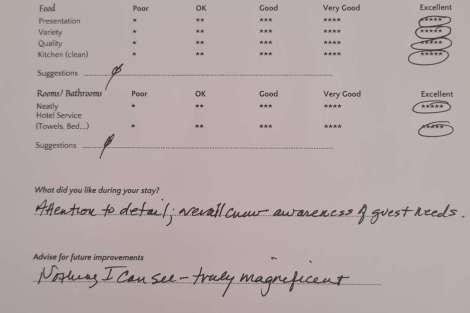 Food Poor OK Good Very Good Excellent
Presentation * ** *** **** *****
Variety * ** *** **** *****
Quality * ** *** **** *****
Kitchen (clean) * ** *** **** *****
Suggestions ø
Rooms/ Bathrooms Poor OK Good Very Good Excellent
Neatly * ** *** **** *****
Hotel Service
(Towels, Bed...) * ** *** **** *****
Suggestions ø
What did you like during your stay?
Attention to detail; overall crew awareness of guest needs.
Advise for future improvements
Nothing I can see - truly magnificent